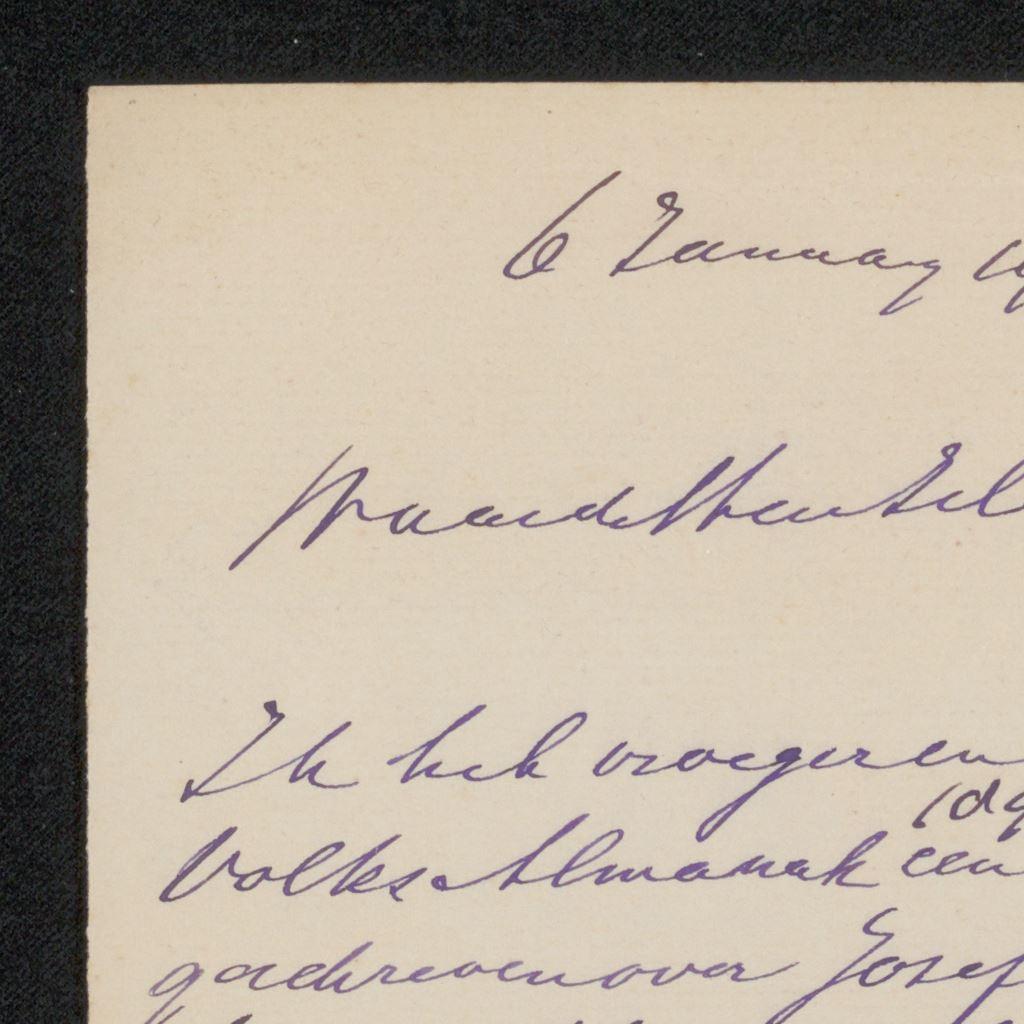 6 Januay 19
Waarde Heer
Ik heb vroeger en
(dg
Volks Almanak een
geschreven over Josef